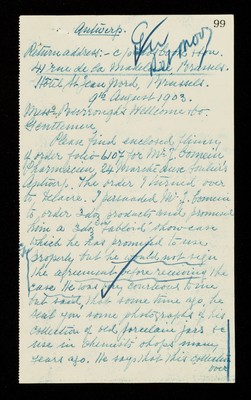 99
Antwerp.
Return address:- c/o
41 rue de la Madeleine Brussels.
Hôtel St Jean, Brussels.
9th August 1903.
Messrs Burroughs Wellcome & Co.
Gentlemen,
Please find enclosed Itinery
& order folio 6107 for Mr J. Comein
Pharmacien, 24 Marché aux Souliers
Antwerp. The order I turned over
to Delacre. I persuaded Mr J. Comein
to order 3 doz products and promised
him a 3 doz 'Tabloid' show-case
which he has promised to use
properly but he would not sign
the agreement before receiving the
case. He was very courteous to me
but said that some time ago, he
sent you some photographs of his
collection of old porcelain jars in
use in Chemists' shops many
years ago. He says that this collection
over